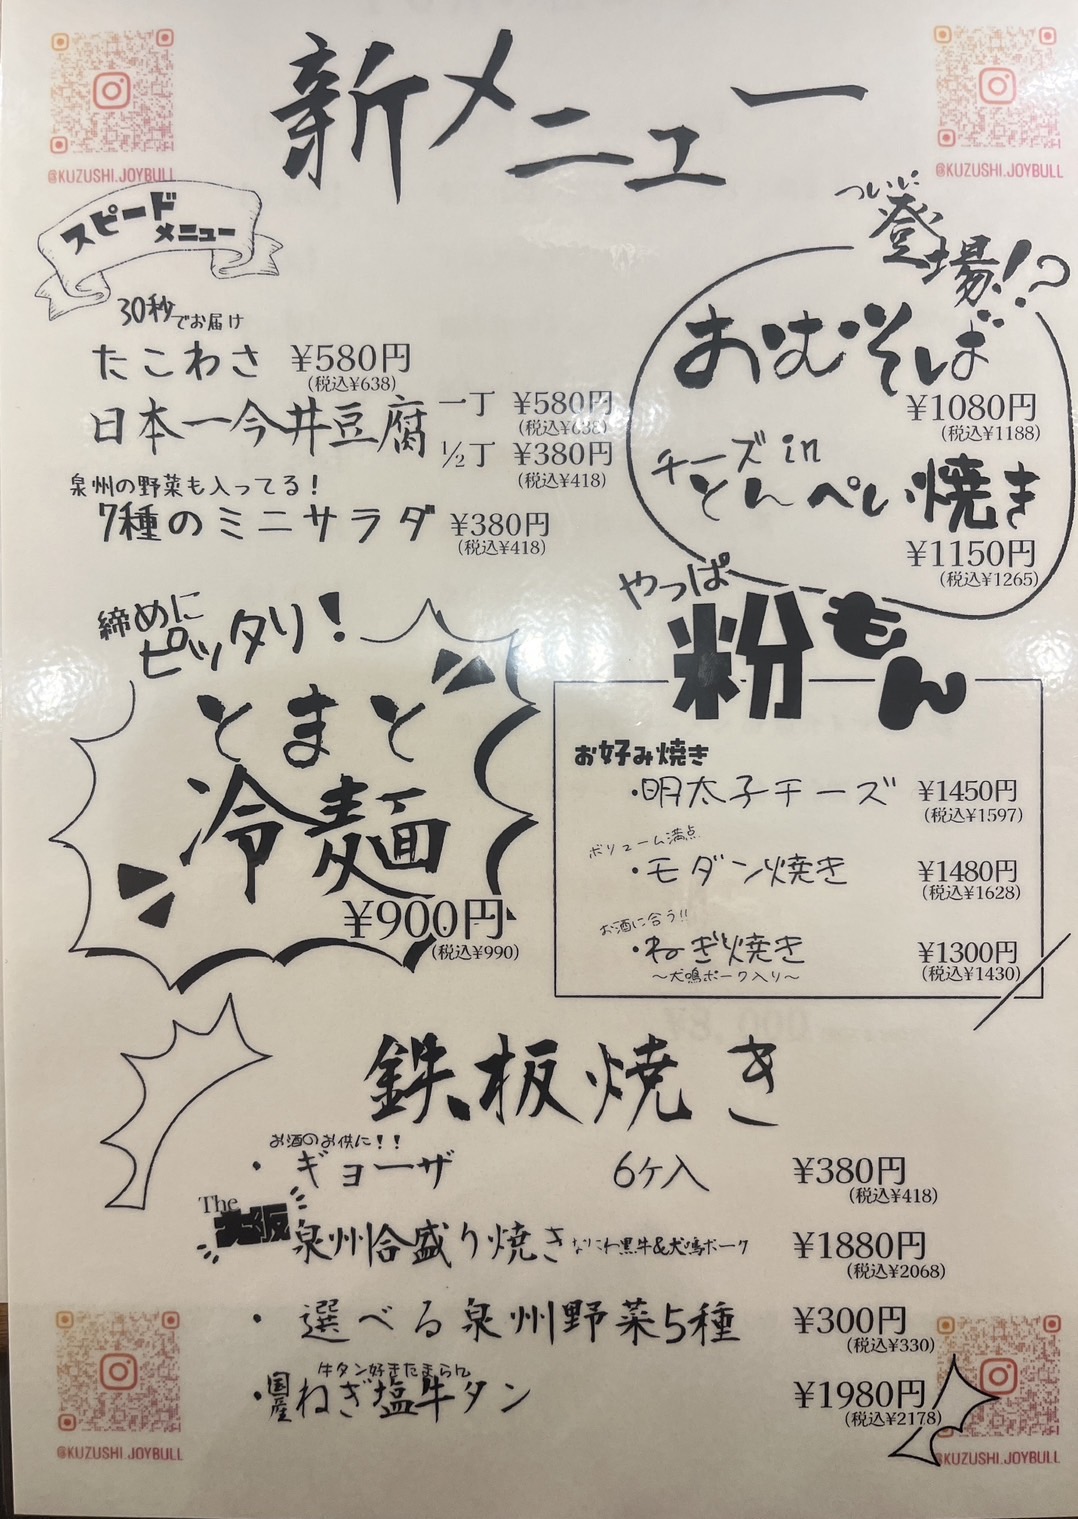 新メニュー
@KUZUSHI.JOYBULL
@KUZUSHI.JOYBULL
スピード
メニュー
30秒でお届け
たこわさ ¥580円
(税込¥638)
日本一今井豆腐 一丁 ¥580円
(税込¥638)
½丁 ¥380円
(税込¥418)
泉州の野菜も入ってる!
7種のミニサラダ ¥380円
(税込¥418)
ついに
登場!?
おむそば
¥1080円
(税込¥1188)
チーズin
とんぺい焼き
¥1150円
(税込¥1265)
締めに
ピッタリ!
とまと
冷麺
¥900円
(税込¥990)
やっぱ
粉もん
お好み焼き
・明太子チーズ ¥1450円
(税込¥1597)
ボリューム満点
・モダン焼き ¥1480円
(税込¥1628)
お酒に合う!!
・ねぎ焼き ¥1300円
〜犬鳴ポーク入り〜 (税込¥1430)
鉄板焼き
お酒のお供に!!
・ギョーザ 6ケ入 ¥380円
(税込¥418)
The
大阪 泉州合盛り焼き なにわ黒牛&犬鳴ポーク ¥1880円
(税込¥2068)
・選べる泉州野菜5種 ¥300円
(税込¥330)
牛タン好きたまらん
・国産ねぎ塩牛タン ¥1980円
(税込¥2178)
@KUZUSHI.JOYBULL
@KUZUSHI.JOYBULL